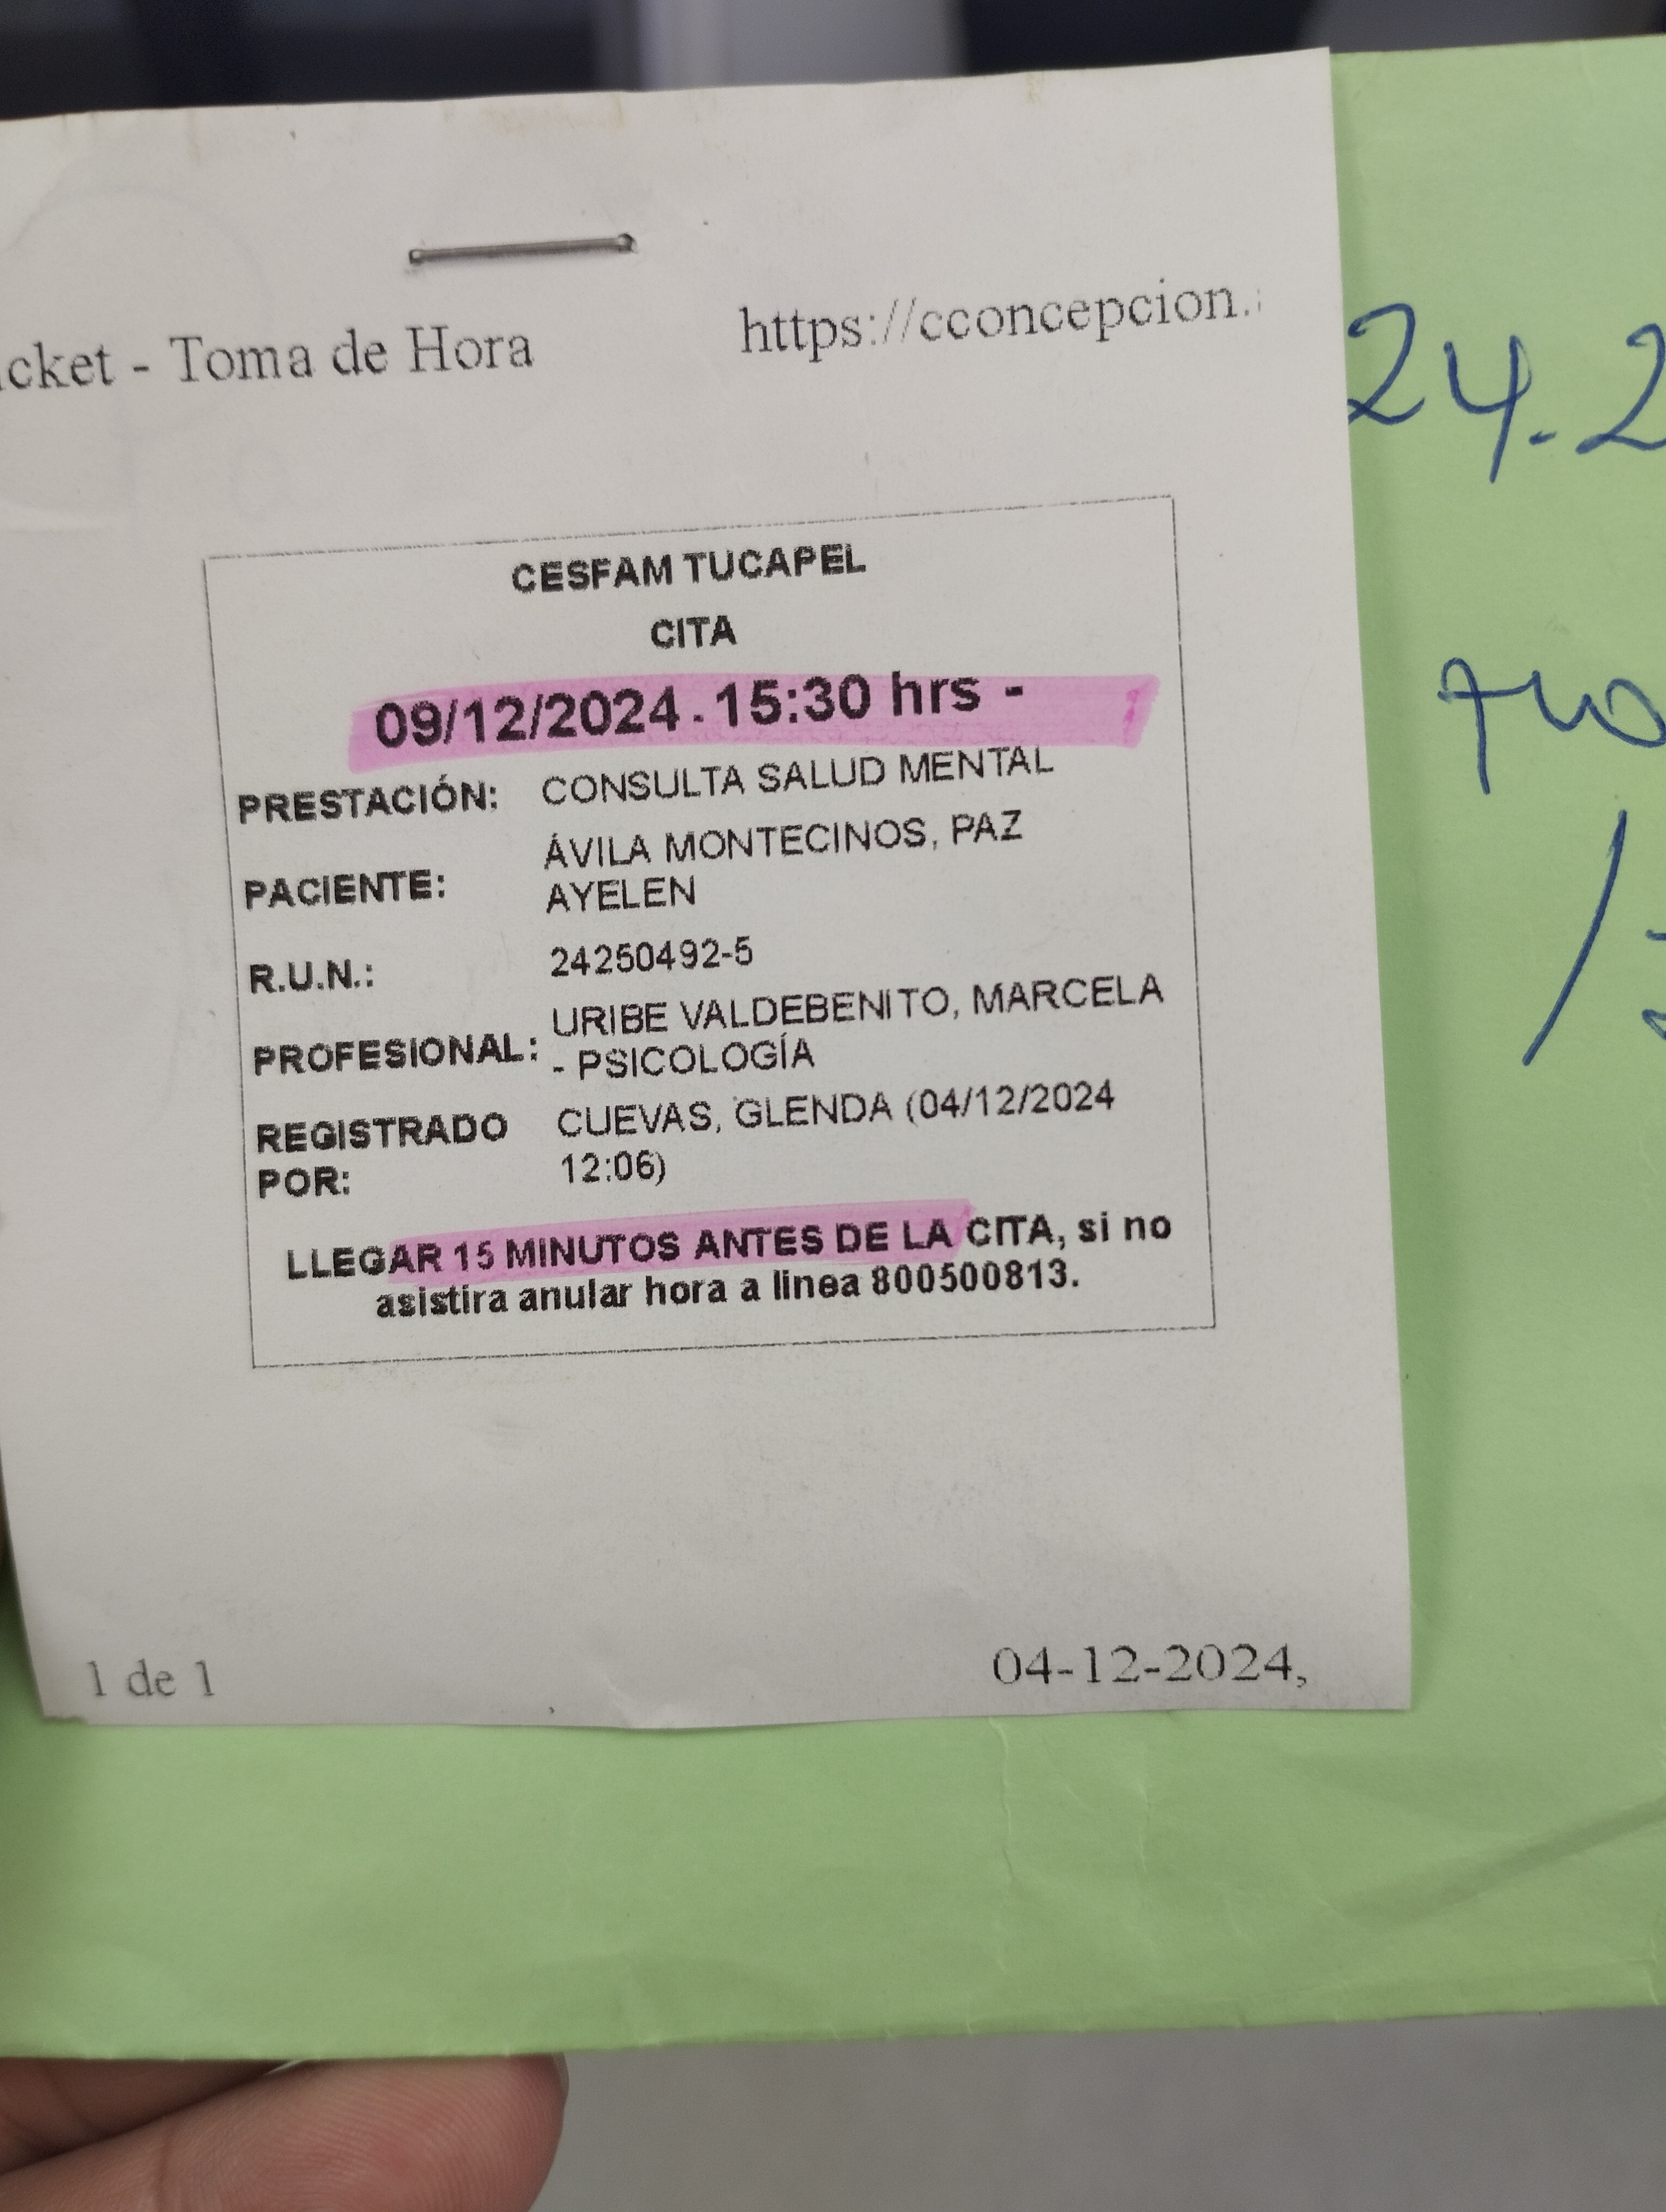 cket - Toma de Hora
https://cconcepcion.
CESFAM TUCAPEL
CITA
09/12/2024 - 15:30 hrs -
PRESTACIÓN: CONSULTA SALUD MENTAL
PACIENTE: ÁVILA MONTECINOS, PAZ
AYELEN
R.U.N.: 24250492-5
PROFESIONAL: URIBE VALDEBENITO, MARCELA
- PSICOLOGÍA
REGISTRADO POR: CUEVAS, GLENDA (04/12/2024
12:06)
LLEGAR 15 MINUTOS ANTES DE LA CITA, si no
asistira anular hora a linea 800500813.
1 de 1
04-12-2024,
24.2